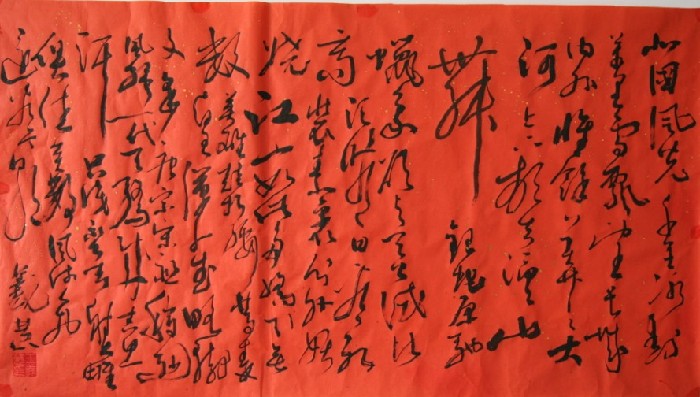 北国风光千里冰封
万里雪飘望长城
内外惟馀莽莽大
河上下顿失滔滔山
舞银蛇原驰
蜡象欲与天公试比
高须晴日看红
装素裹分外妖
娆江山如此多娇引无
数英雄竞折腰惜秦
皇汉武略输
文采唐宗宋祖稍逊
风骚一代天骄成吉思
汗只识弯弓射大雕
俱往矣数风流人物
还看今朝